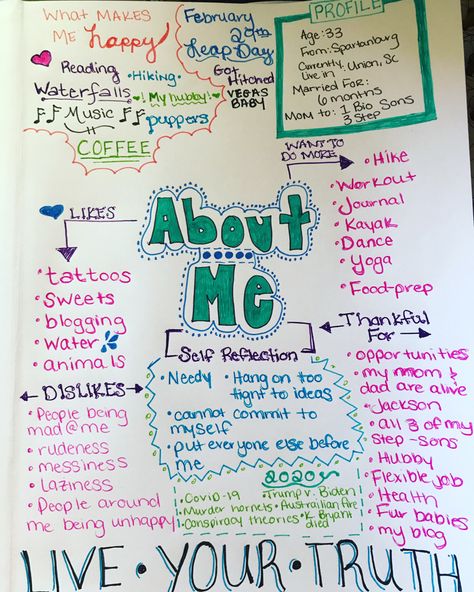 What MAKES
ME happy
Reading
•Hiking•
Waterfalls
! My hubby!
Music
puppers
COFFEE
February
29th
Leap Day
Got
Hitched
VEGAS
BABY
PROFILE
Age: 33
From: Spartanburg
Currently Union, SC
Live in
Married For:
6 months
Mom to: 1 Bio Sons
3 Step
WANT TO
DO MORE
• Hike
• Workout
• Journal
• Kayak
• Dance
• Yoga
• Food-prep
LIKES
• tattoos
• Sweets
• blogging
• Water
• animals
About
Me
Thankful
For
• opportunities
• my mom &
dad are alive
• Jackson
• all 3 of my
step-sons
• Hubby
• Flexible job
• Health
• Fur babies
• my blog
Self Reflection
• Needy
• Hang on too
tight to ideas
• cannot commit to
myself
• put everyone else before
me
DISLIKES
• People being
mad @ me
• rudeness
• messiness
• laziness
• People around
me being unhappy
2020
• Covid-19
• Trump v. Biden
• Murder hornets
• Austrailian Fire
• Conspiracy theories
• K. Bryant
died
LIVE • YOUR • TRUTH